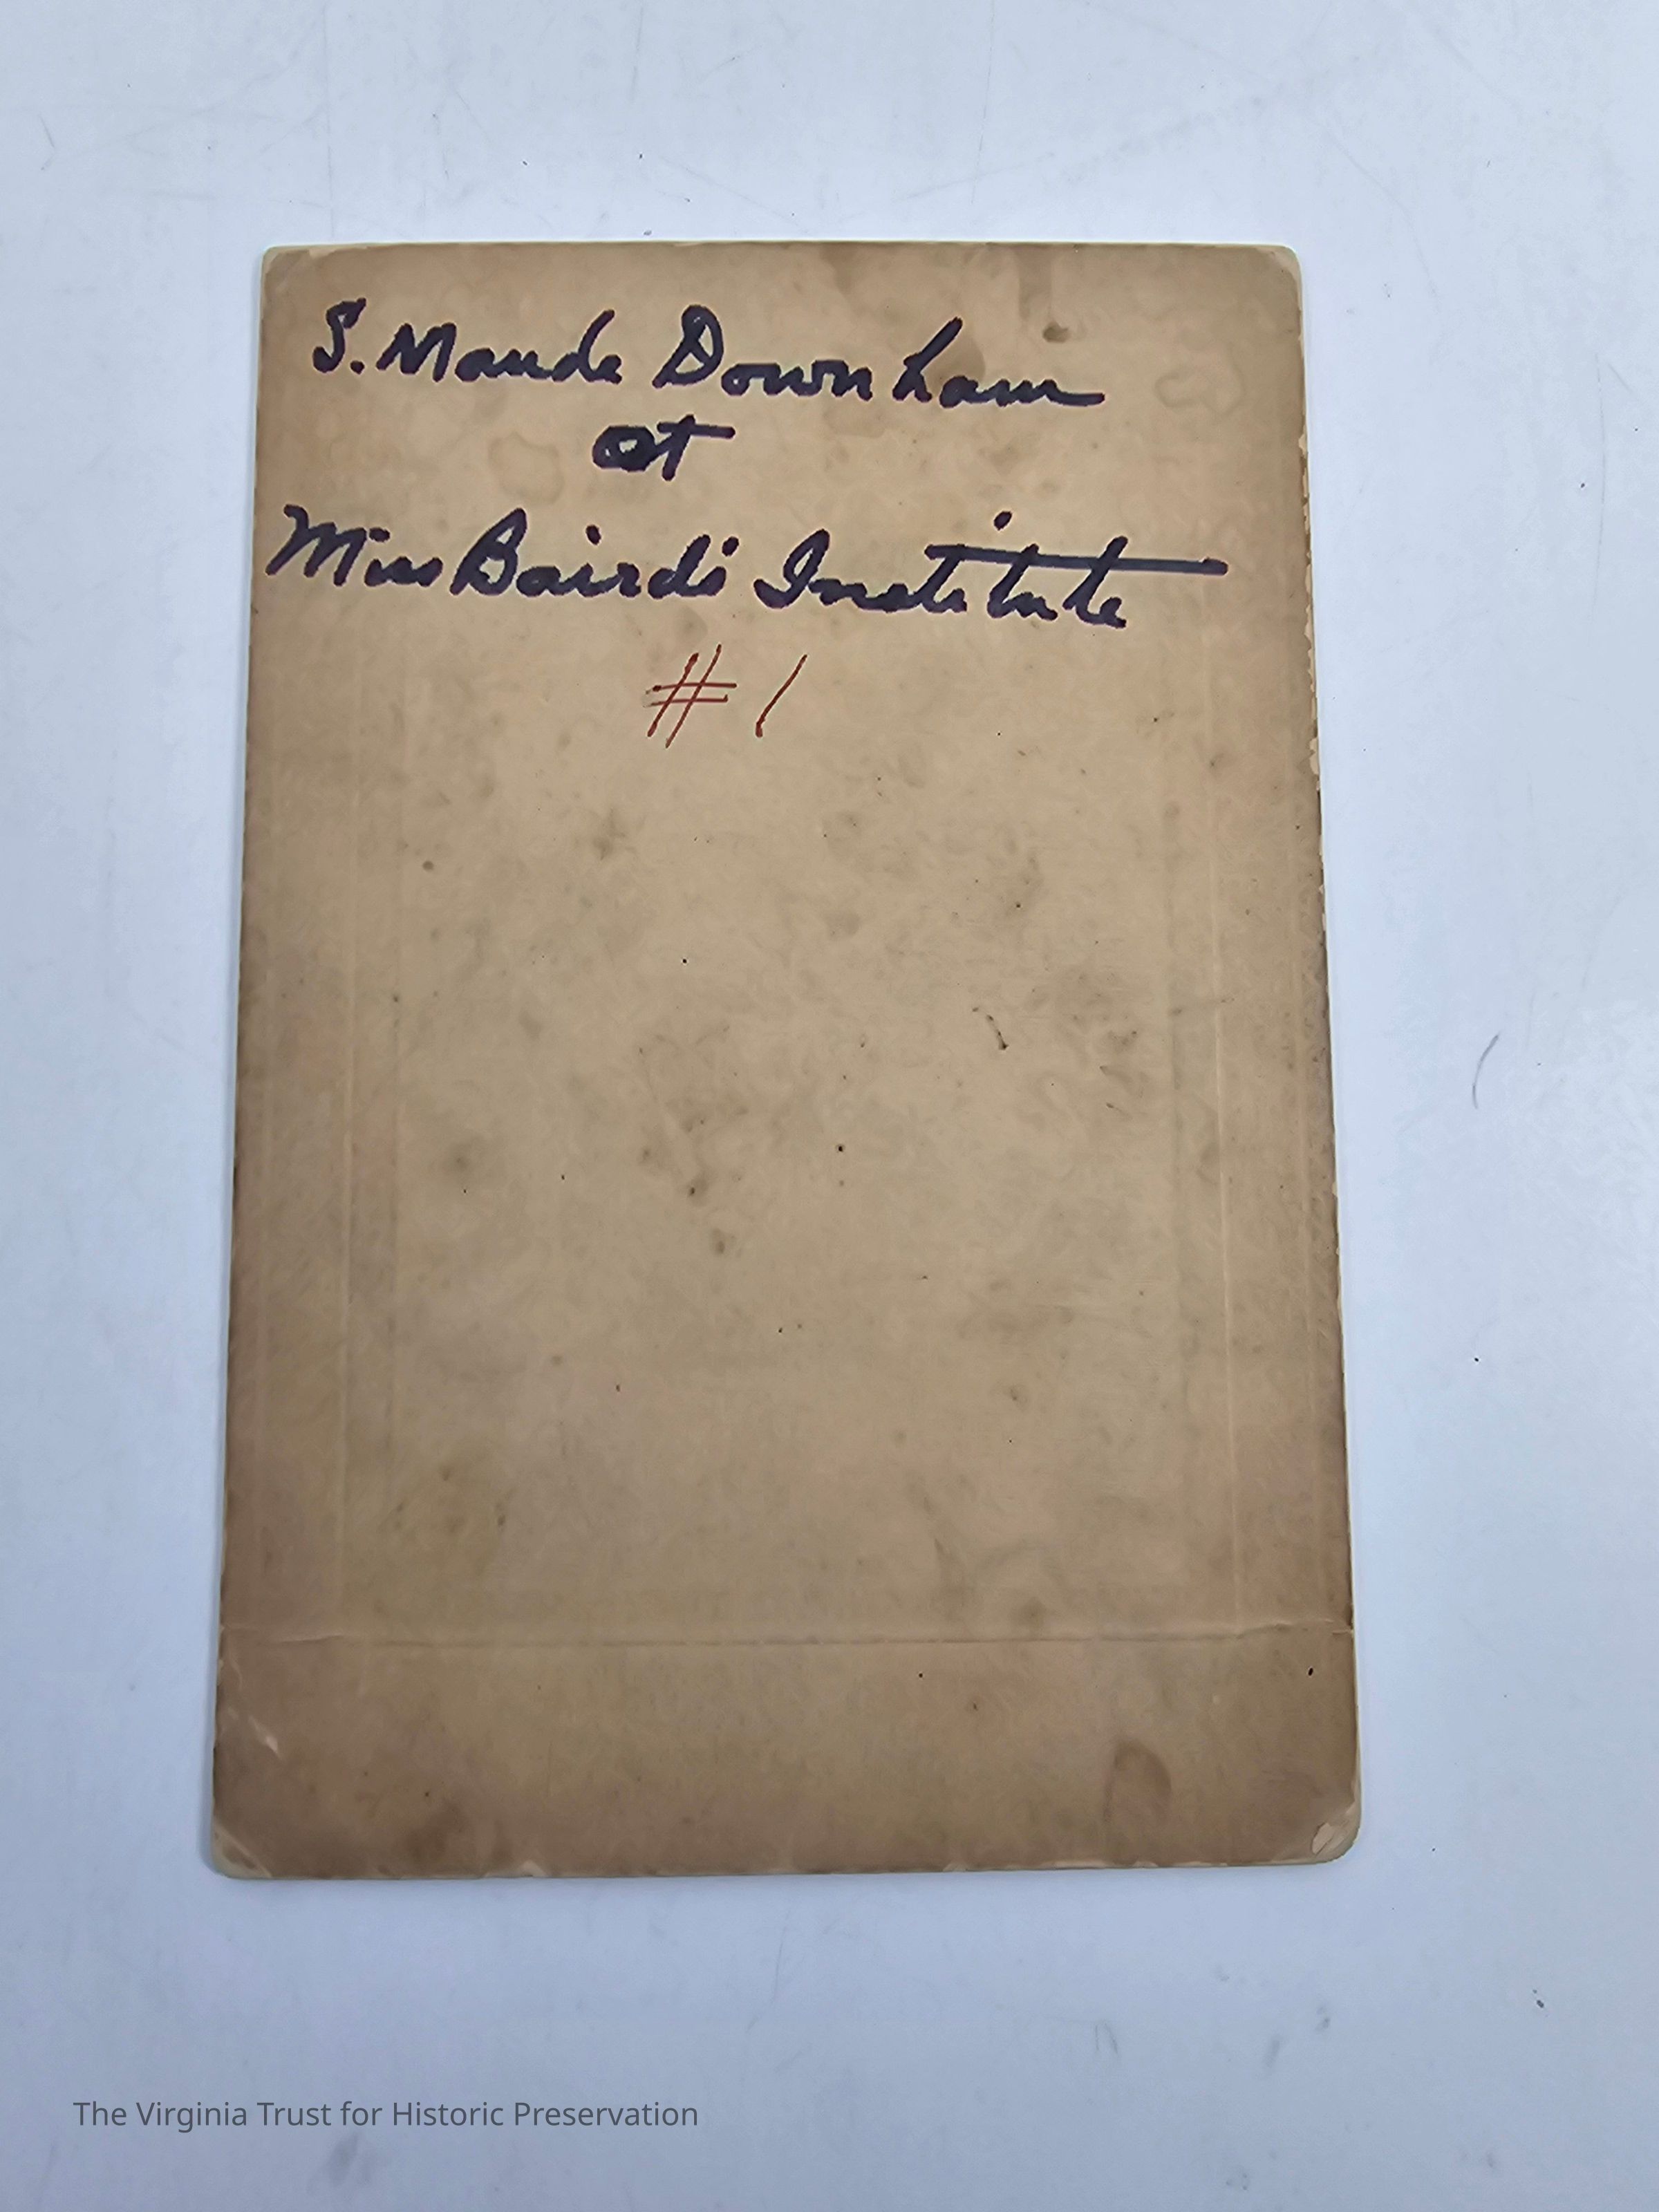 S. Maude Downham
at
Miss Baird's Institute
# 1
The Virginia Trust for Historic Preservation